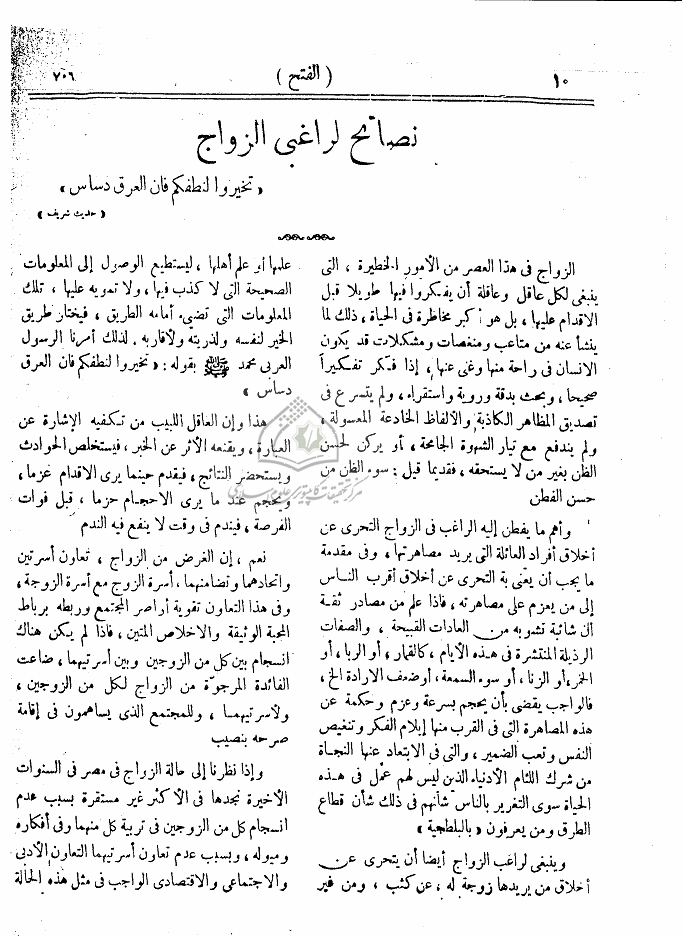 ١٠
( الفتح )
٧٠٦
نصائح لراغبي الزواج
« تخيروا لنطفكم فان العرق دساس »
( حديث شريف )
الزواج فى هذا العصر من الأمور الخطيرة ، التى
ينبغى لكل عاقل وعاقلة أن يفكروا فيها طويلا قبل
الاقدام عليها ، بل هو أكبر مخاطرة فى الحياة ، ذلك لما
ينشأ عنه من متاعب ومنغصات ومشكلات قد يكون
الانسان فى راحة منها وغنى عنها ، إذا فكر تفكيراً
صحيحا ، وبحث بدقة وروية واستقراء ، ولم يتسرع فى
تصديق المظاهر الكاذبة والألفاظ الخادعة المعسولة ،
ولم يندفع مع تيار الشهوة الجامحة ، أو يركن لحسن
الظن بغير من لا يستحقه ، فقديما قيل : سوء الظن من
حسن الفطن
وأهم ما يفطن إليه الراغب فى الزواج التحرى عن
أخلاق أفراد العائلة التى يريد مصاهرتها ، وفى مقدمة
ما يجب أن يعنى بة التحرى عن أخلاق أقرب الناس
إلى من يعزم على مصاهرته ، فاذا علم من مصادر ثقة
أن شائبة تشوبه من العادات القبيحة ، والصفات
الرذيلة المنتشرة فى هذه الأيام ، كالقمار ، أو الربا ، أو
الخر ، أو الزنا ، أو سوء السمعة ، أو ضعف الارادة الخ ،
فالواجب يقضى بأن يحجم بسرعة وعزم وحكمة عن
هذه المصاهرة التى فى القرب منها إيلام الفكر وتنغيص
النفس وتعب الضمير ، والتى فى الابتعاد عنها النجاة
من شرك اللئام الأدنياء الذين ليس لهم عمل فى هذه
الحياة سوى التغرير بالناس شأنهم فى ذلك شأن قطاع
الطرق ومن يعرفون « بالبلطجية »
وينبغى لراغب الزواج أيضا أن يتحرى عن
أخلاق من يريدها زوجة له ، عن كثب ، ومن غير
علمها أو علم أهلها ، ليستطيع الوصول إلى المعلومات
الصحيحة التى لا كذب فيها ، ولا تمويه عليها ، تلك
المعلومات التى تضىء أمامه الطريق ، فيختار طريق
الخير لنفسه ولذريته ولأقاربه . لذلك أمرنا الرسول
العربى محمد ﷺ بقوله : « تخيروا لنطفكم فان العرق
دساس »
هذا وإن العاقل اللبيب من تكفيه الإشارة عن
العبارة ، ويقنعه الأثر عن الخبر ، فيستخلص الحوادث
ويستحضر النتائج ، فيقدم حينما يرى الاقدام غزما ،
ويحجم عند ما يرى الاحجام حزما ، قبل فوات
الفرصة ، فيندم فى وقت لا ينفع فيه الندم
نعم ، إن الغرض من الزواج ، تعاون أسرتين
واتحادهما وتضامنهما ، أسرة الزوج مع أسرة الزوجة ،
وفى هذا التعاون تقوية أراصر المجتمع وربطه برباط
المحبة الوثيقة والاخلاص المتين ، فاذا لم يكن هناك
انسجام بين كل من الزوجين وبين أسرتيهما ، ضاعت
الفائدة المرجوّة من الزواج لكل من الزوجين ،
ولأسرتيهما ، وللمجتمع الذى يساهمون فى إقامة
صرحه بنصيب
وإذا نظرنا إلى حالة الزواج فى مصر فى السنوات
الأخيرة نجدها فى الأكثر غير مستقرة بسبب عدم
انسجام كل من الزوجين فى تربية كل منهما وفى أفكاره
وميوله ، وبسبب عدم تعاون أسرتيهما التعاون الأدبى
والاجتماعى والاقتصادى الواجب فى مثل هذه الحالة
مركز تحقيقات كامپيوترى علوم اسلامى